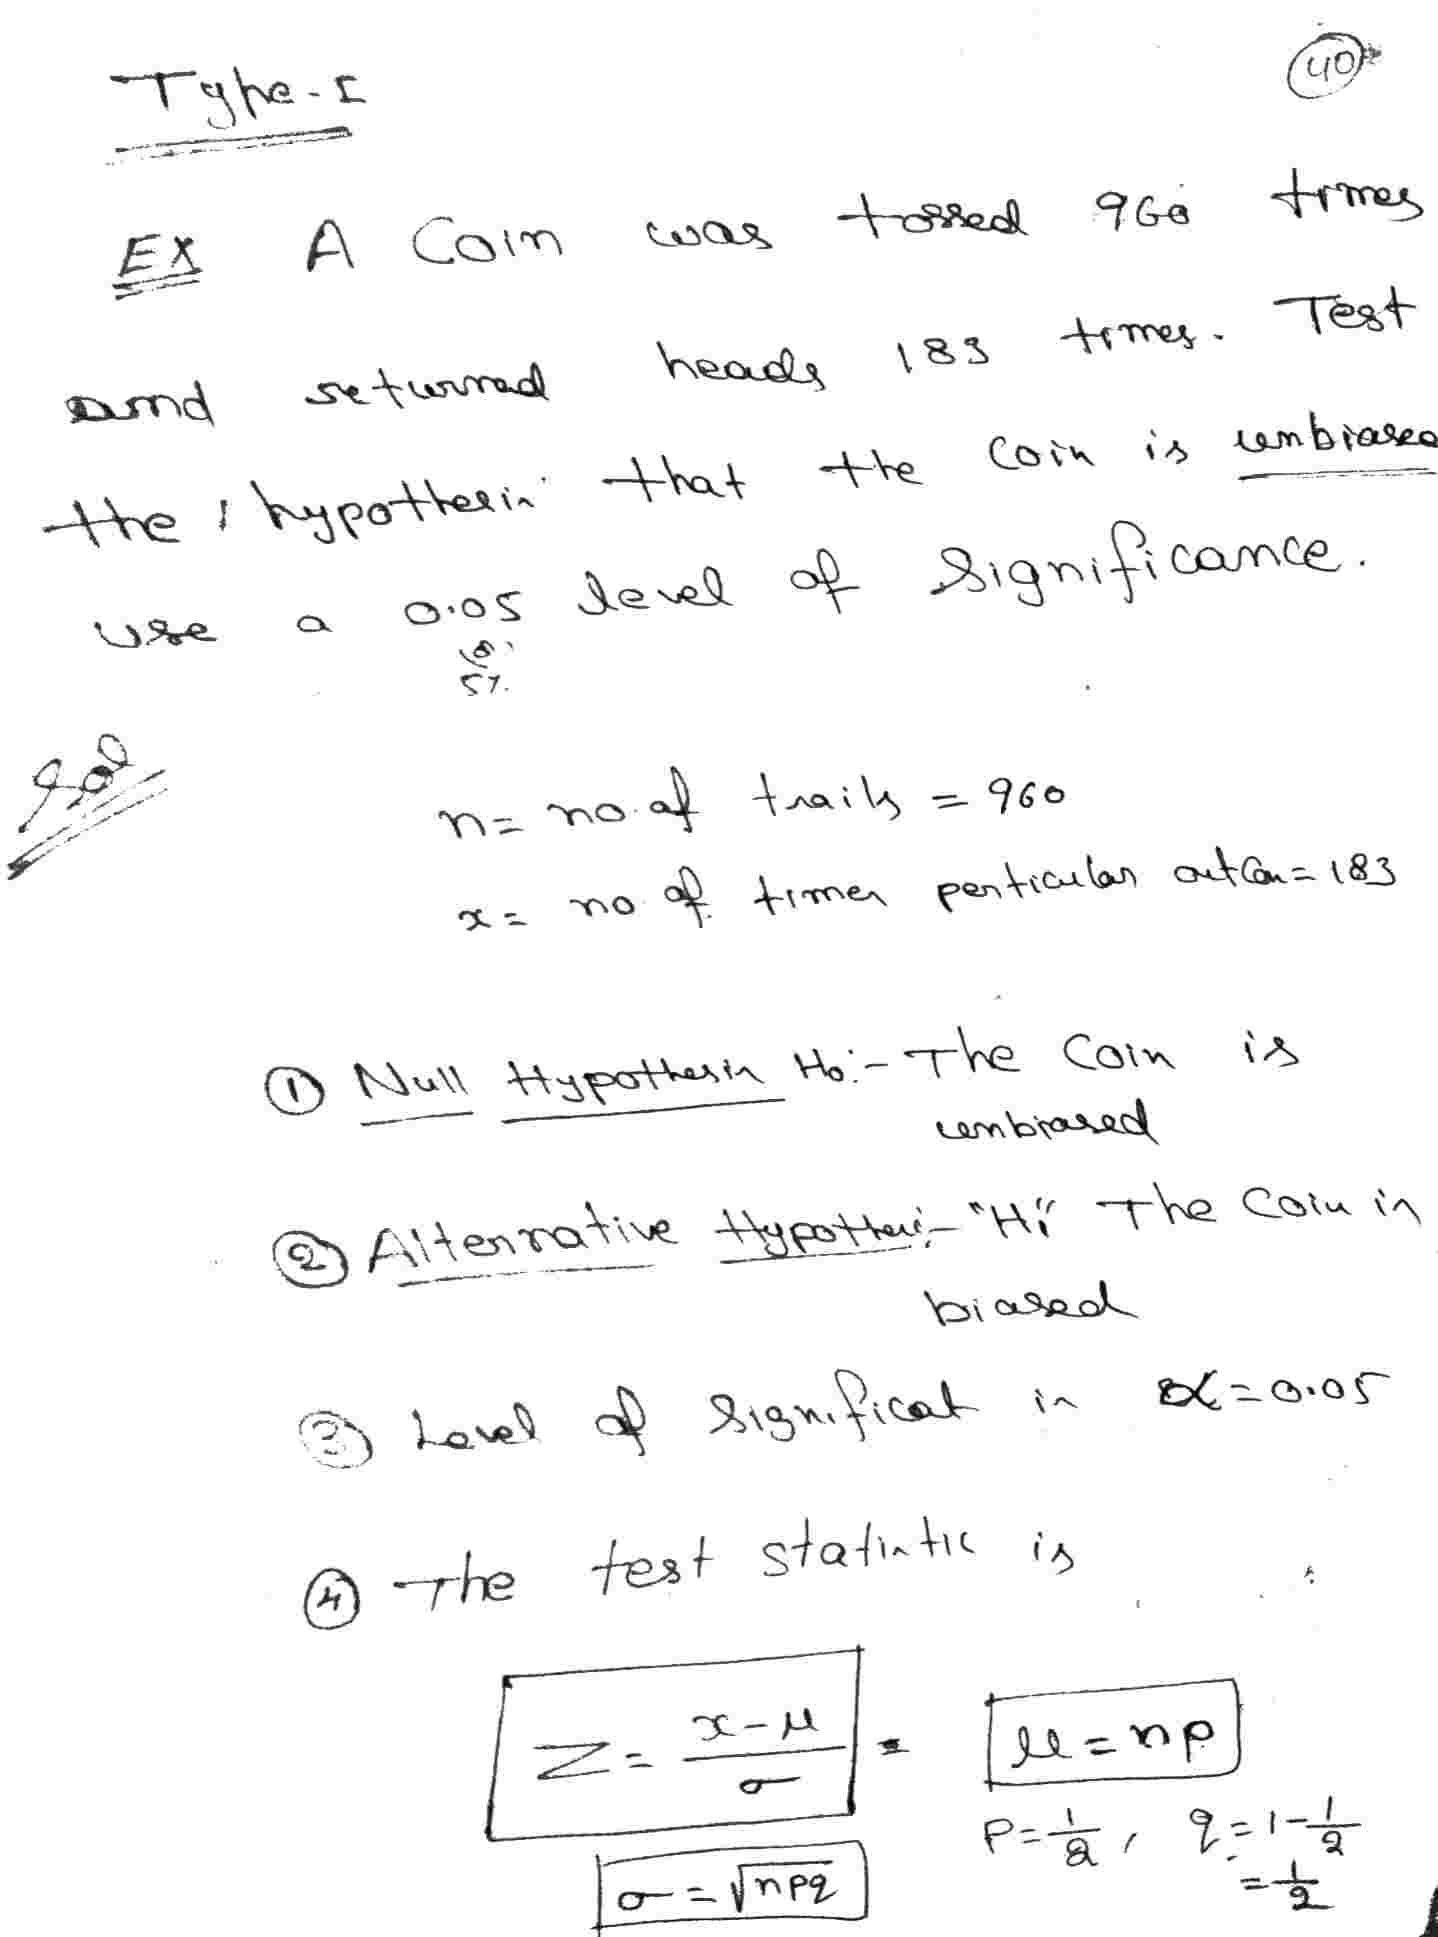 Type-I
40
EX A Coin was tossed 960 times
and returned heads 183 times. Test
the hypothesis that the coin is unbiased
use a 0.05 level of significance.
(or)
5%.
Sol
n = no. of trails = 960
x = no. of times perticular outcom = 183
① Null Hypothesis H₀:- The Coin is
unbiased
② Alternative Hypothesis:- "H₁" The Coin is
biased
③ Level of significat is α = 0.05
④ The test statistic is
Z = (x-μ)/σ = μ = np
P = 1/2, q = 1 - 1/2
= 1/2
σ = √npq